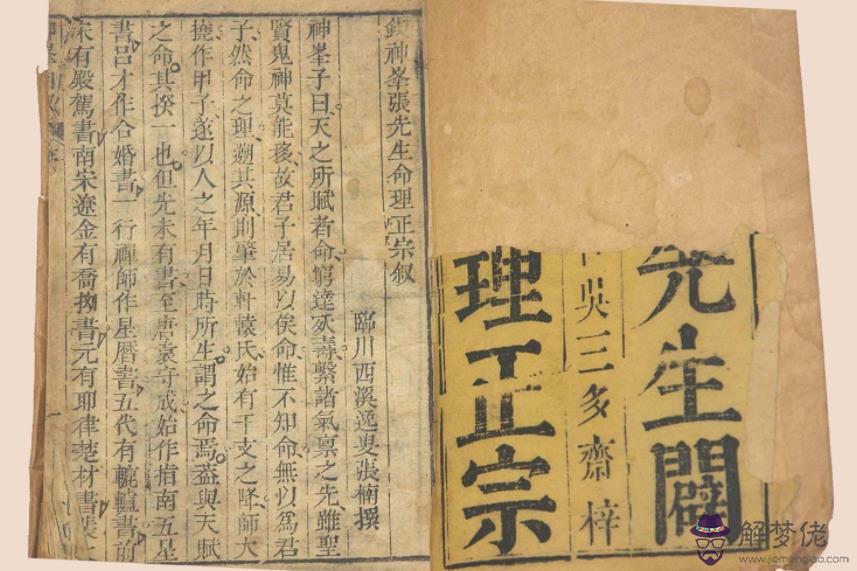 先生闢
吳三多齋梓
理正宗
鍥神峯張先生命理正宗叙
臨川西溪逸叟張楠撰
神峯子曰天之所賦者命窮達殀壽繫諸氣禀之先雖聖
賢鬼神莫能移故君子居易以俟命惟不知命無以為君
子然命之理遡其源則肇於軒轅氏始有干支之降師大
撓作甲子遂以人之年月日時所生謂之命焉葢與天賦
之命其揆一也但先未有書至唐袁守成始作指南五星
書呂才作合婚書一行禪師作星曆書五代有轆轤書前
宋有殿駕書南宋遼金有喬拗書元有耶律楚材書
解梦佬
www.jiemenglao.com